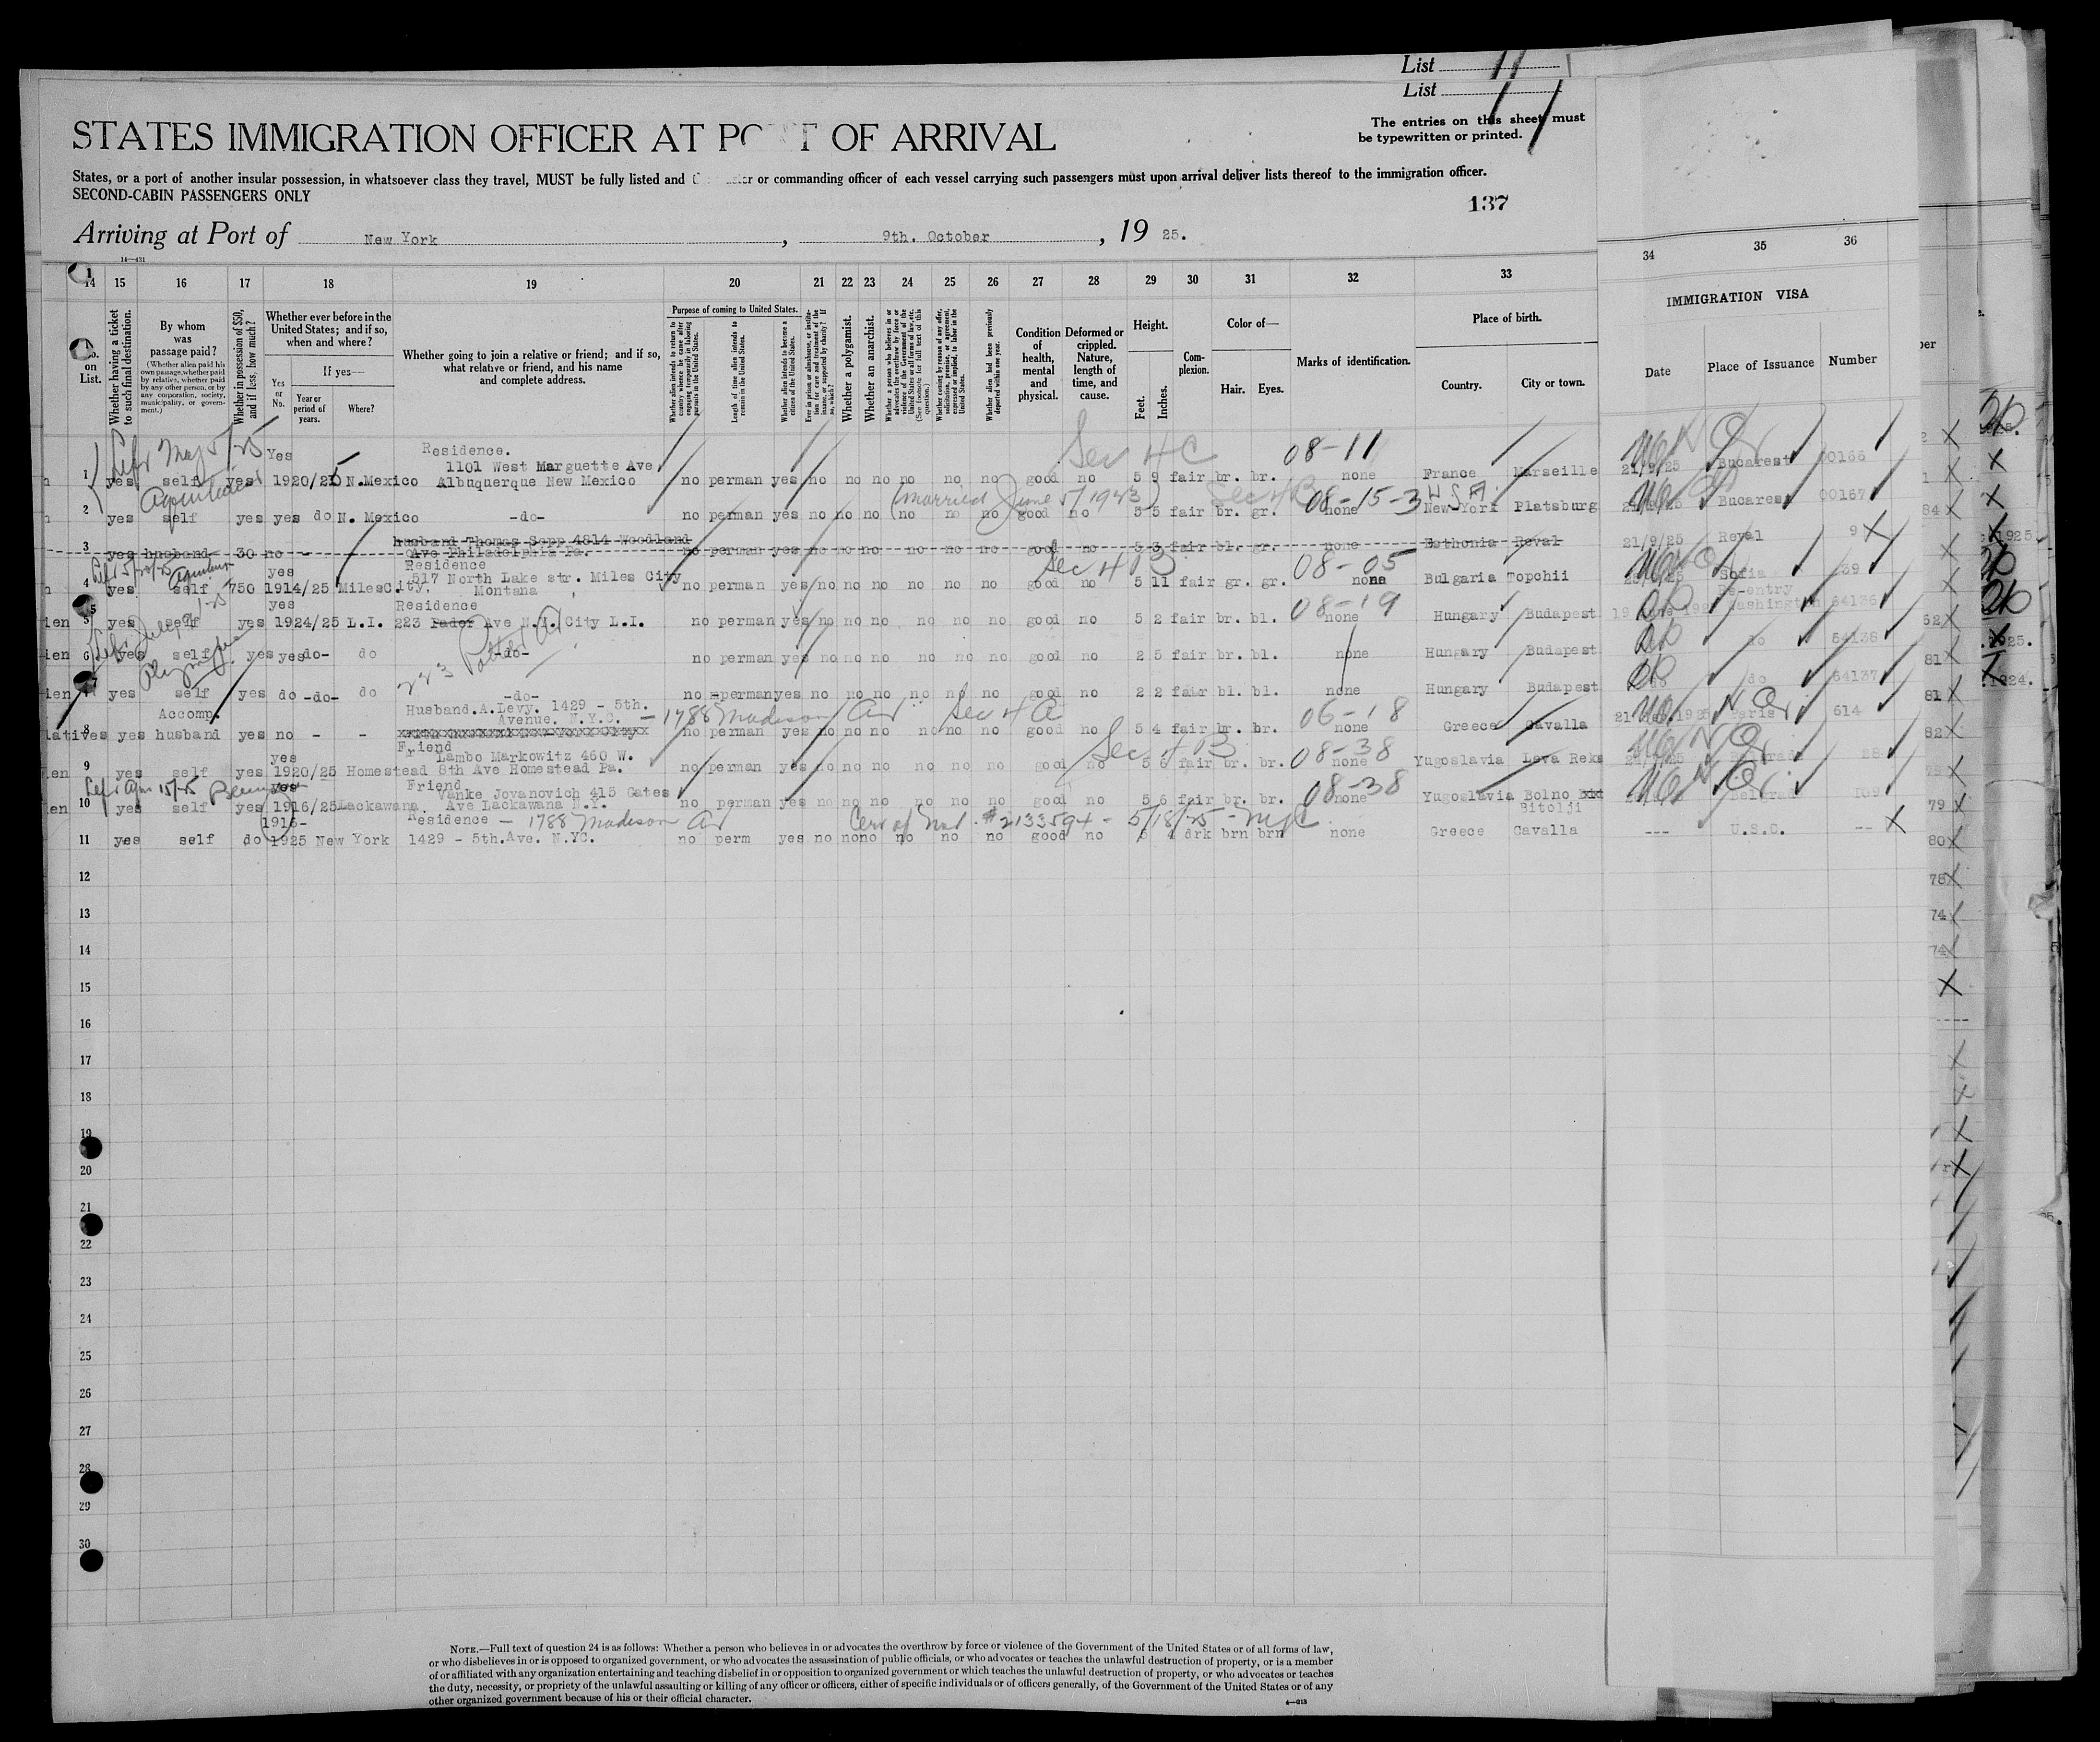 List 11
List 11
The entries on this sheet must
be typewritten or printed.
STATES IMMIGRATION OFFICER AT PORT OF ARRIVAL
States, or a port of another insular possession, in whatsoever class they travel, MUST be fully listed and or commanding officer of each vessel carrying such passengers must upon arrival deliver lists thereof to the immigration officer.
SECOND-CABIN PASSENGERS ONLY
137
Arriving at Port of New York, 9th. October, 19 25.
14—431
14 15 16 17 18 19 20 21 22 23 24 25 26 27 28 29 30 31 32 33 34 35 36
No. on List.
Whether having a ticket to such final destination.
By whom was passage paid?
(Whether alien paid his own passage, whether paid by relative, whether paid by any other person, or by any corporation, society, municipality, or government.)
Whether in possession of $50, and if less, how much?
Whether ever before in the United States; and if so, when and where?
Yes or No.
If yes—
Year or period of years.
Where?
Whether going to join a relative or friend; and if so, what relative or friend, and his name and complete address.
Purpose of coming to United States.
Whether alien intends to return to country whence he came after engaging temporarily in laboring pursuits in the United States.
Length of time alien intends to remain in the United States.
Whether alien intends to become a citizen of the United States.
Ever in prison or almshouse, or institution for care and treatment of the insane, or supported by charity? If so, which?
Whether a polygamist.
Whether an anarchist.
Whether a person who believes in or advocates the overthrow by force or violence of the Government of the United States or all forms of law, etc. (See footnote for full text of this question.)
Whether coming by reason of any offer, solicitation, promise, or agreement, expressed or implied, to labor in the United States.
Whether alien had been previously deported within one year.
Condition of health, mental and physical.
Deformed or crippled. Nature, length of time, and cause.
Height.
Feet. Inches.
Complexion.
Color of—
Hair. Eyes.
Marks of identification.
Place of birth.
Country. City or town.
IMMIGRATION VISA
Date Place of Issuance Number
Left May 5/25 Yes Residence. Sec 4C 08-11
1101 West Marguette Ave
1 yes self yes 1920/25 N.Mexico Albuquerque New Mexico no perman yes no no no no no no good no 5 9 fair br. br. none France Marseille 21/9/25 Bucarest 00166
(Married June 5/1943) Sec 4B 08-15-3 U S A.
2 yes self yes yes do N. Mexico -do- no perman yes no no no no no no good no 5 5 fair br. gr. none New York Platsburg Bucarest 00167
husband Thomas Sepp 4814 Woodland
3 yes husband 30 no - - Ave Philadelphia Pa. no perman yes no no no no no no good no 5 3 fair bl. gr. none Esthonia Reval 21/9/25 Reval 9
yes Residence Sec 4 B 08-05
517 North Lake str. Miles City
4 yes self 750 1914/25 MilesCity. Montana no perman yes no no no no no no good no 5 11 fair gr. gr. none Bulgaria Topchii Sofia 39
yes Residence 08-19 Re-entry
5 yes self yes 1924/25 L.I. 223 Pador Ave N.Y. City L.I. no perman yes no no no no no no good no 5 2 fair br. bl. none Hungary Budapest Washington 64136
6 yes self yes yes do- do -do- no perman yes no no no no no no good no 2 5 fair br. bl. none Hungary Budapest do 64138
7 yes self yes do -do- do -do- no -perman yes no no no no no no good no 2 2 fair bl. bl. none Hungary Budapest do 64137
Accomp. Husband.A.Levy. 1429 - 5th.
Avenue. N.Y.C. - 1788 Madison Av Sec 4 A 06-18
8 yes husband yes no - - no perman yes no no no no no no good no 5 4 fair br. br. none Greece Cavalla Paris 614
yes Friend Sec 4 B 08-38
Lambo Markowitz 460 W.
9 yes self yes 1920/25 Homestead 8th Ave Homestead Pa. no perman yes no no no no no no good no 5 6 fair br. br. none Yugoslavia Leva Reka
yes Friend 08-38
Vanke Jovanovich 415 Gates
10 yes self yes 1916/25 Lackawana. Ave Lackawana N.Y. no perman yes no no no no no no good no 5 6 fair br. br. none Yugoslavia Bolno Bitolji Belgrad 109
1916- Residence - 1788 Madison Av Cert of Nat. #2133594 - 5/18/25 - NYC
11 yes self do 1925 New York 1429 - 5th.Ave. N.YC. no perm yes no no no no no no good no drk brn brn none Greece Cavalla --- U.S.C. --
12
13
14
15
16
17
18
19
20
21
22
23
24
25
26
27
28
29
30
NOTE.—Full text of question 24 is as follows: Whether a person who believes in or advocates the overthrow by force or violence of the Government of the United States or of all forms of law,
or who disbelieves in or is opposed to organized government, or who advocates the assassination of public officials, or who advocates or teaches the unlawful destruction of property, or is a member
of or affiliated with any organization entertaining and teaching disbelief in or opposition to organized government or which teaches the unlawful destruction of property, or who advocates or teaches
the duty, necessity, or propriety of the unlawful assaulting or killing of any officer or officers, either of specific individuals or of officers generally, of the Government of the United States or of any
other organized government because of his or their official character.
4—213